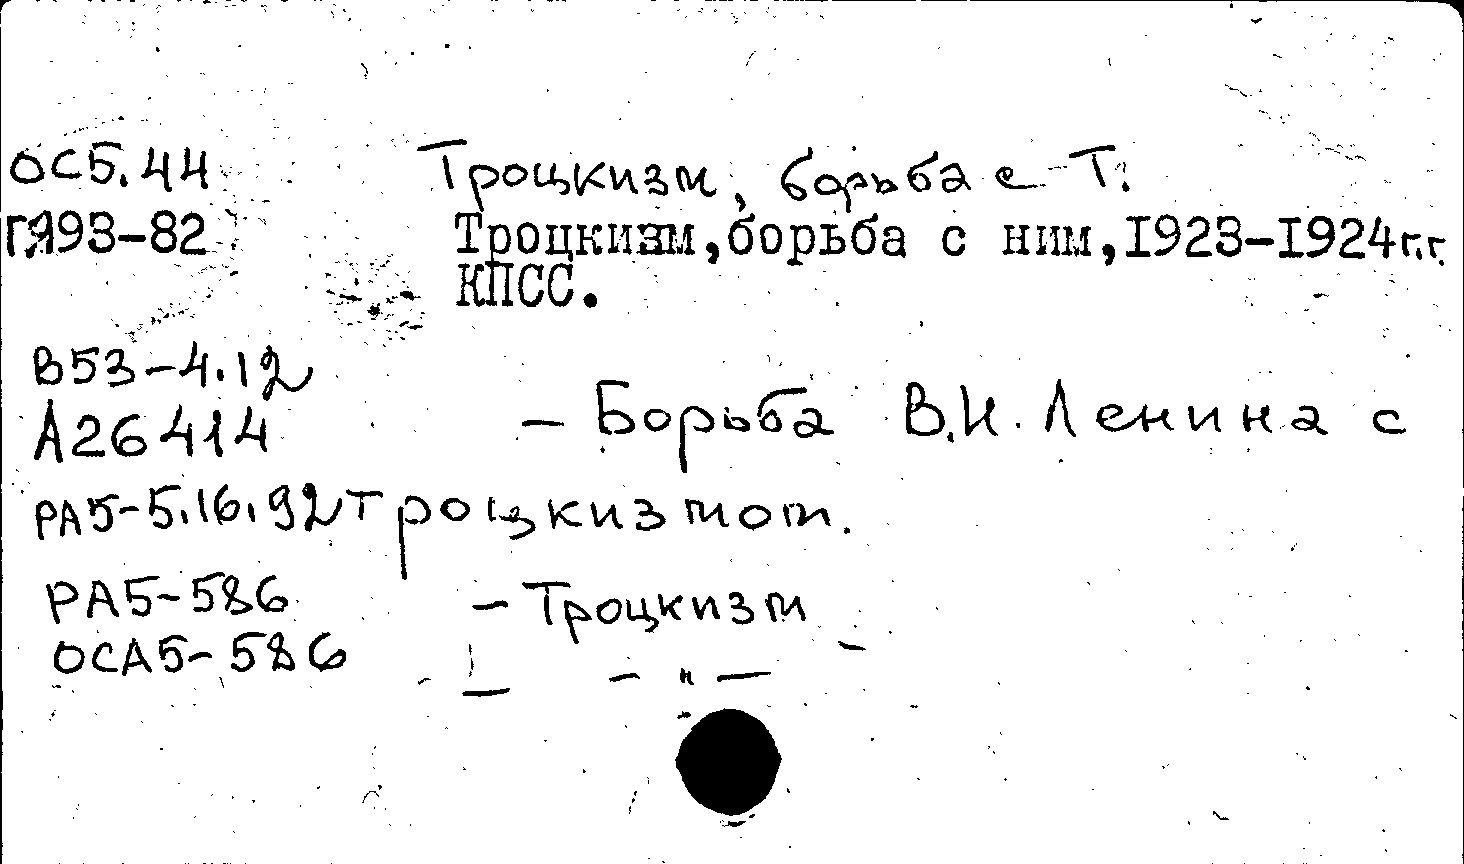 ОС5.44 Троцкизм, борьба с Т.
ГЯ93-82 Троцкизм,борьба с ним,I923-I924г.г.
КПСС.
В53-4.12
А26414 - Борьба В.И. Ленина с
РА5-5.16.92 троцкизмом.
РА5-586 - Троцкизм
ОСА5-586 - - " -